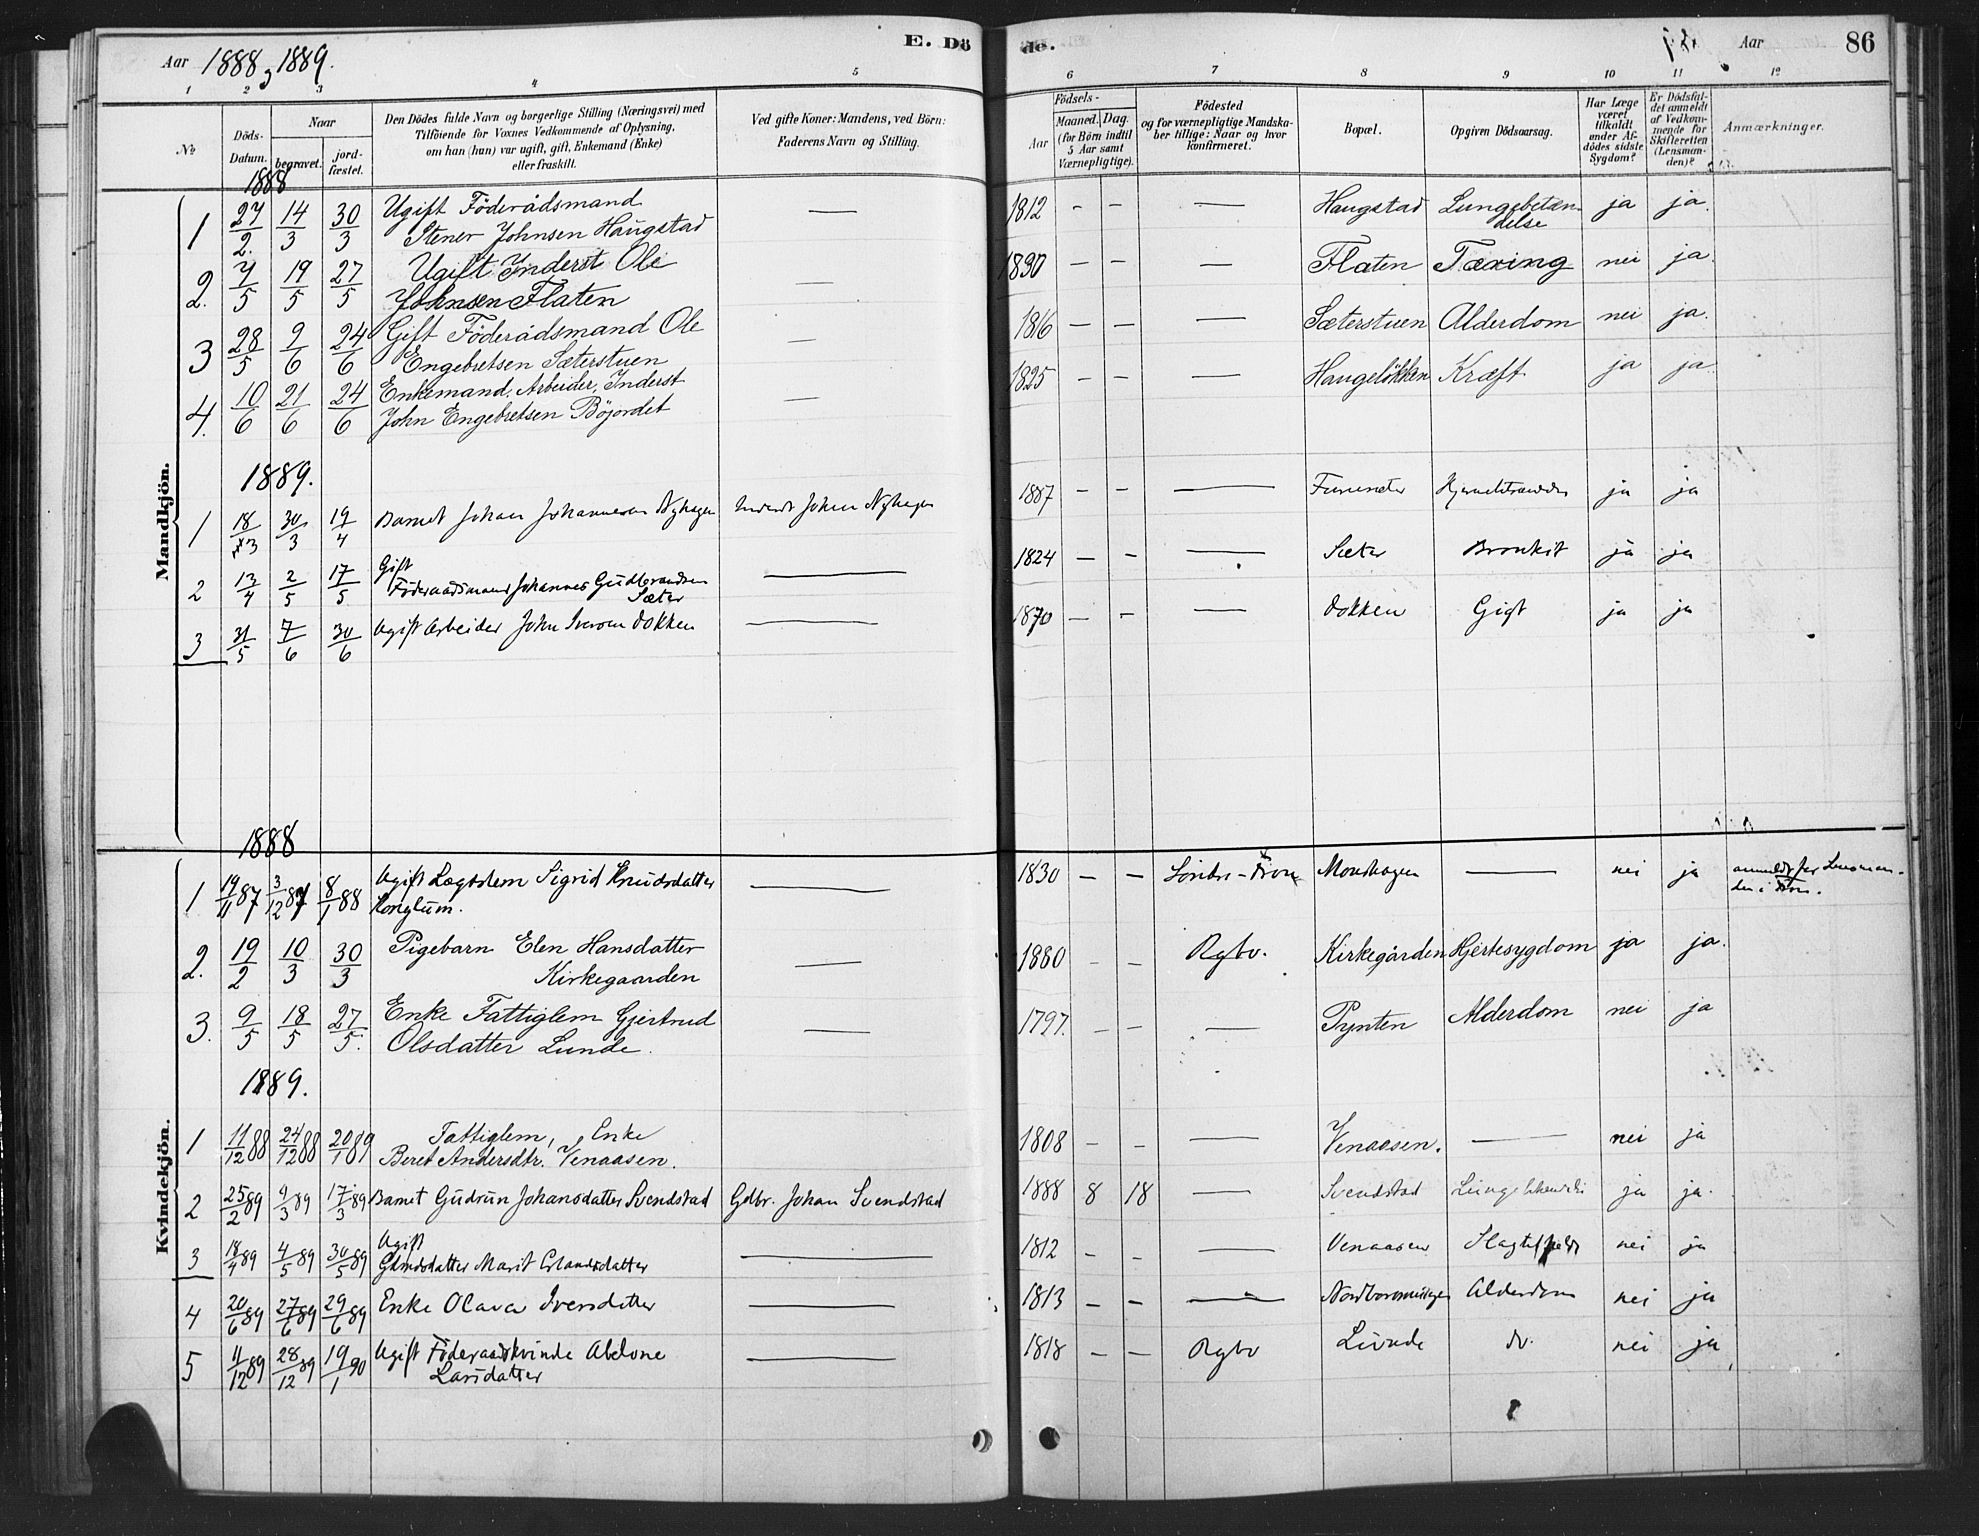 Aar 1888, 1889.
E. Dö
de.
Aar
86
1 2 3 4 5 6 7 8 9 10 11 12
№
Döds-Datum.
Naar
begravet.
jord-fæstet.
Den Dödes fulde Navn og borgerlige Stilling (Næringsvei) med
Tilföiende for Voxnes Vedkommende af Oplysning,
om han (hun) var ugift, gift, Enkemand (Enke)
eller fraskilt.
Ved gifte Koner: Mandens, ved Börn:
Faderens Navn og Stilling.
Födsels-
Aar
Maaned. Dag.
(for Börn indtil
5 Aar samt
Værnepligtige).
Födested
og for værnepligtige Mandska-
ber tillige: Naar og hvor
konfirmeret.
Bopæl.
Opgiven Dödsaarsag.
Har Læge
været
tilkaldt
under Af-
dödes sidste
Sygdom?
Er Dödsfal-
det anmeldt
af Vedkom-
mende for
Skifteretten
(Lensman-
den)?
Anmærkninger.
Mandkjön.
1888
1 27/2. 14/3 30/3 Ugift Föderådsmand Stener Johnsen Haugstad — 1812 - - — Haugstad Lungebetændelse ja ja.
2. 7/5 19/5 27/5 Ugift Inderst Ole Johnsen Flaten — 1830 - - — Flaten Tæring nei ja.
3 28/5 9/6 24/6 Gift Föderådsmand Ole Engebretsen Sæterstuen — 1816 - - — Sæterstuen Alderdom nei ja.
4. 10/6 21/6 24/6 Enkemand. Arbeider, Inderst John Engebretsen Böjordet — 1825 - - — Haugelökken Kræft ja ja.
1889.
1 18/3 30/3 19/4 Barnet Johan Johannesen Nyhagen Inderst Johan Nyhagen 1887 - - — ja ja
2 13/4 2/5 17/5 Gift Föderaadsmand Johannes Gudbrandsen Sæter — 1824 - - — Sæter Bronkit ja ja
3 31/5 7/6 30/6 Ugift Arbeider John Iversen Dokken — 1870 - - — Dokken Gigt ja ja
Kvindekjön.
1888
1 19/11 87 3/12 87 8/1 88 Ugift Lægdslem Sigrid Knudsdatter Konglum. — 1830 - - Söndre-Fron Monshagen — nei ja anmeldt for Lensmanden i Fron.
2. 19/2 10/3 30/3 Pigebarn Elen Hansdatter Kirkegaarden — 1880 - - Rgbo. Kirkegården Hjertesygdom ja ja.
3. 9/5 18/5 27/5. Enke Fattiglem Gjertrud Olsdatter Lunde. — 1797. - - — Pynten Alderdom nei ja
1889.
1 11/12 88 24/12 88 20/1 89 Fattiglem, Enke Beret Andersdtr. Venaasen. — 1808 - - — Venaasen. — nei ja
2 25/2 89 9/3 89 17/3 89 Barnet Gudrun Johansdatter Svendstad Gdbr. Johan Svendstad 1888 8 18 — Svendstad ja ja.
3 18/4 89 4/5 89 30/5 89 Ugift Gårdsdatter Marit Erlandsdatter — 1812 - - — Venaasen Slagtilfælde nei ja
4 20/6 89 27/6 89 29/6 89 Enke Olava Iversdatter — 1813 - - — Alderdom nei ja
5 11/12 89 28/12 89 19/1 90 Ugift Föderaadskvinde Abelone Larsdatter — 1818 - - Rgbo Lunde do. nei ja